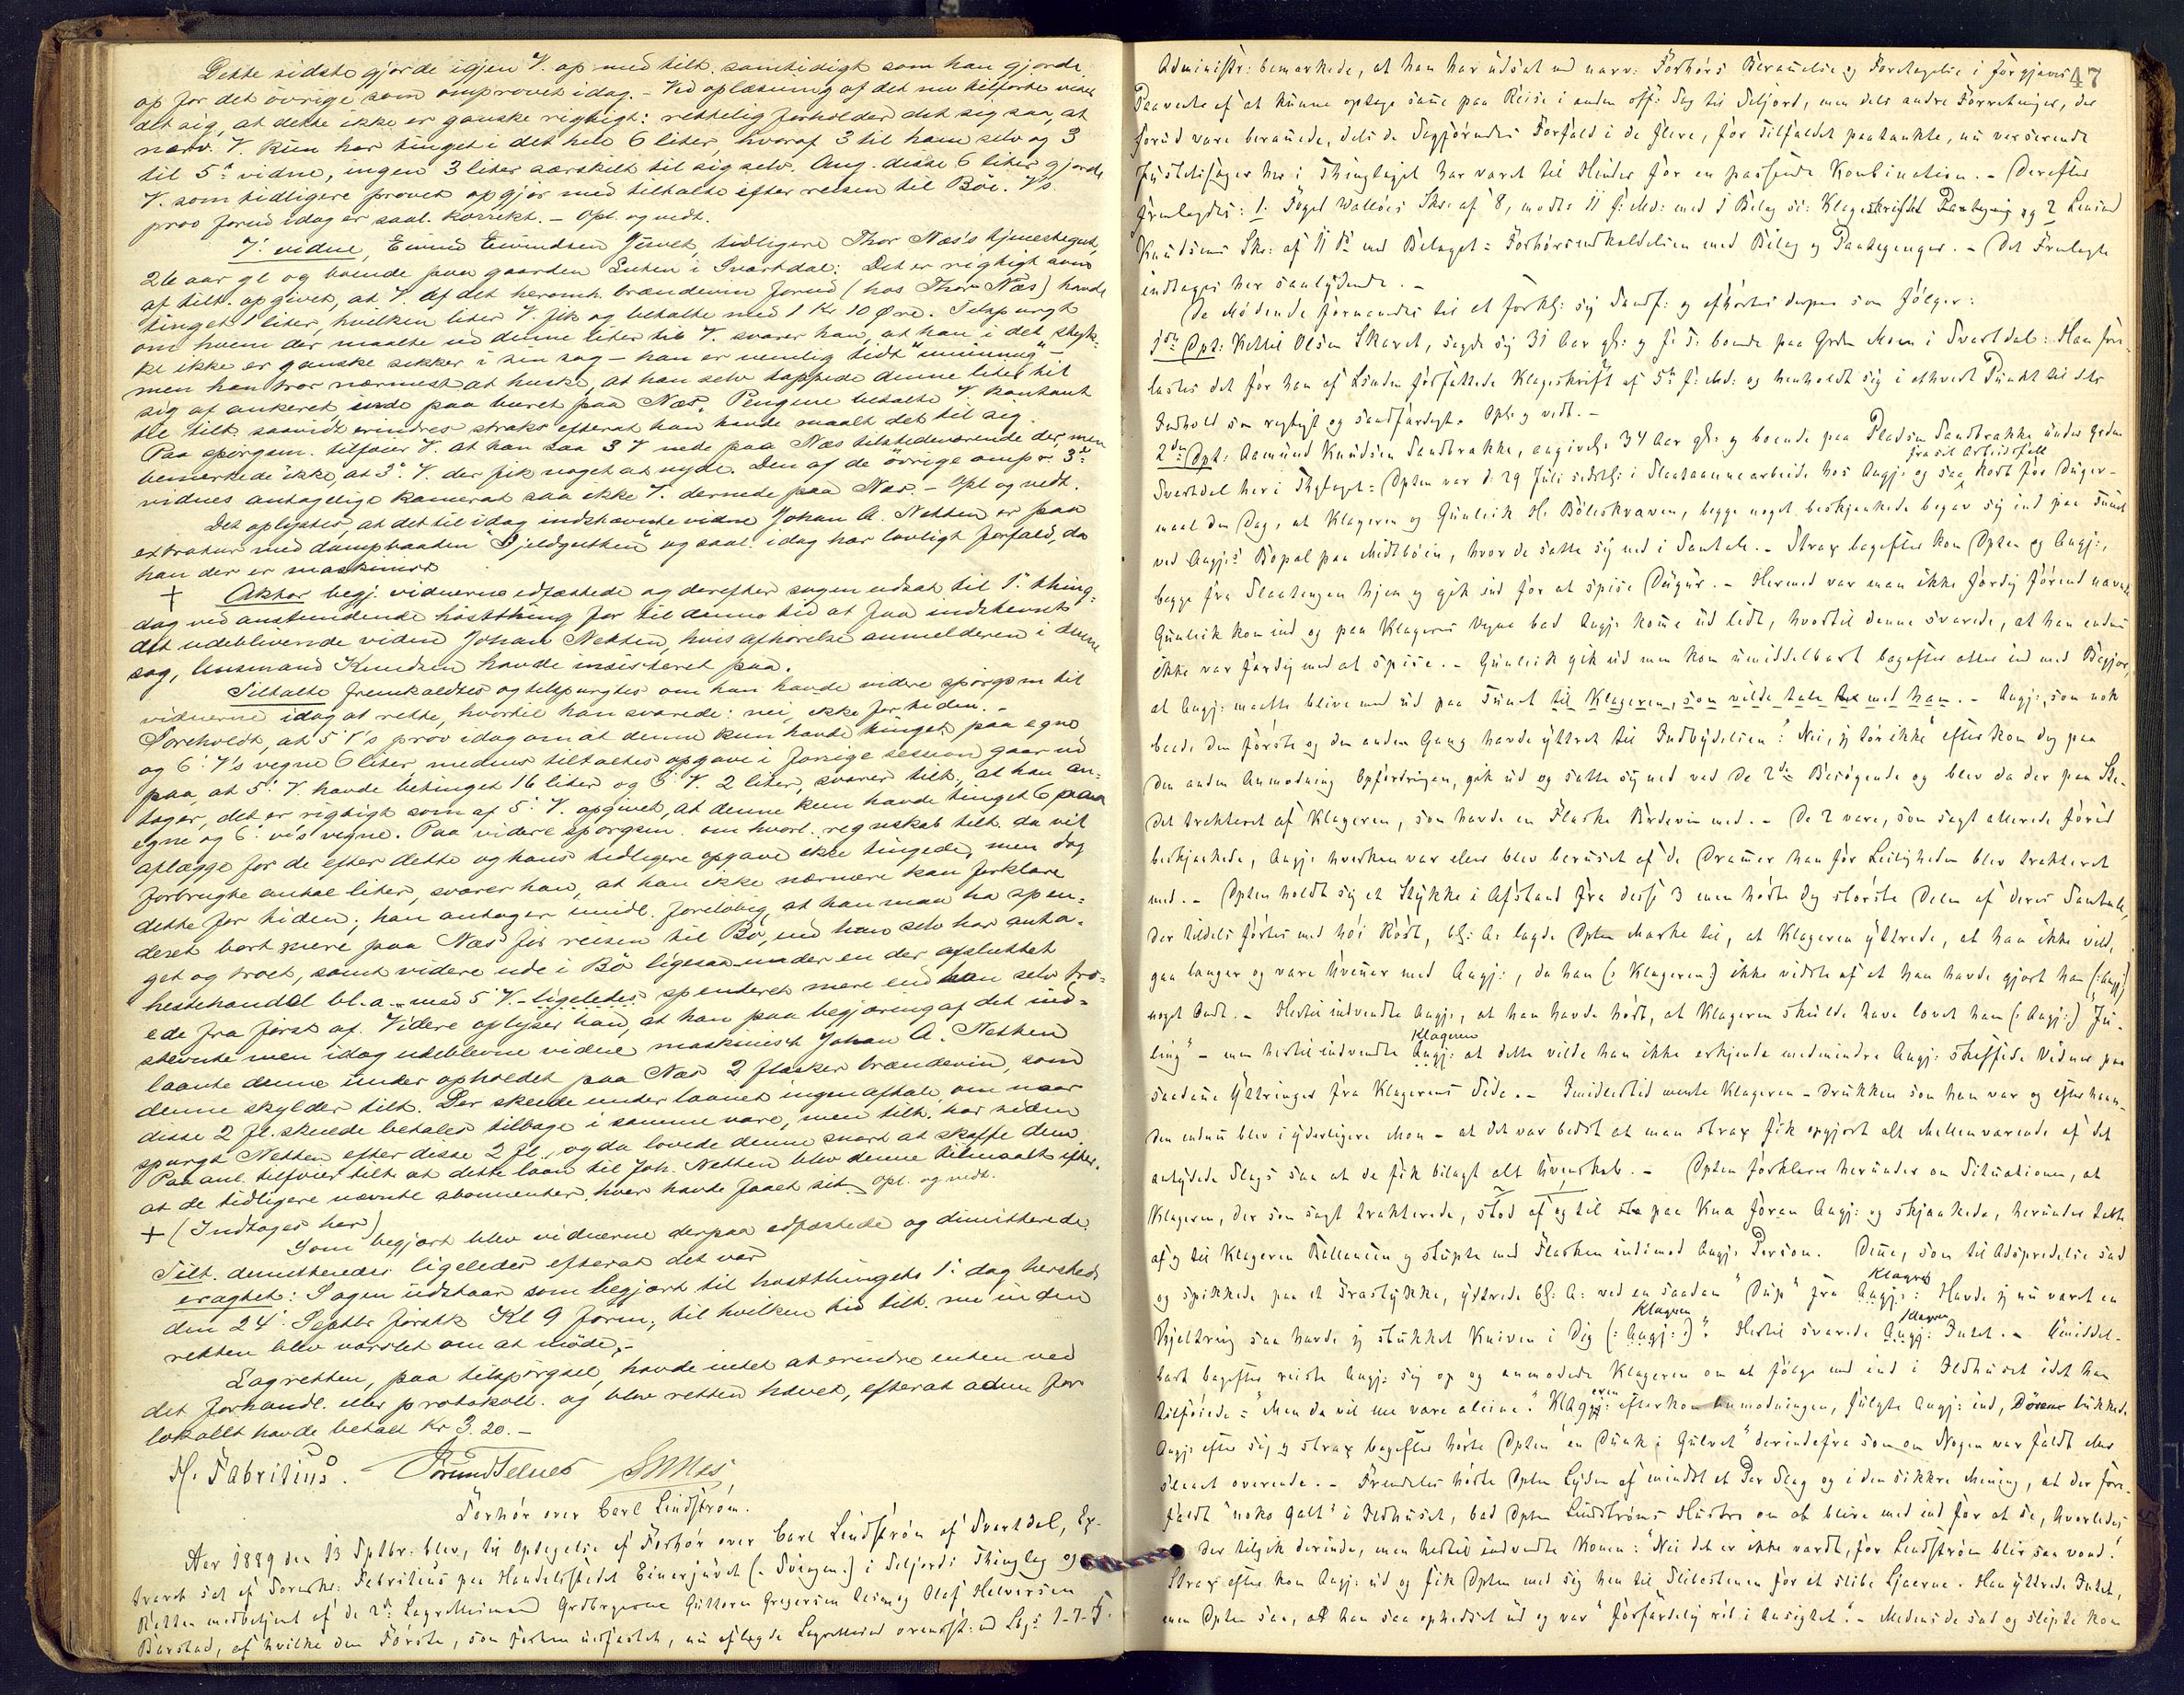 Dette sidste gjorde igjen V. op med tilt. samtidigt som han gjorde
op for det øvrige som omprovet idag. - Ved oplæsning af det nu tilførte viser
det sig, at dette ikke er ganske rigtigt: rettelig forholder det sig saa, at
nærv. V. kun har tinget i det hele 6 liter, hvoraf 3 til ham selv og 3
til 5te vidne, ingen 3 liter særskilt til sig selv. Ang. disse 6 liter gjorde
V. som tidligere provet opgjør med tiltalte efter reisen til Bøe. V's
prov forud idag er saal. korrekt. - Opl. og vedt.
7de vidne, Eivind Eivindsen Juvet, tidligere Thor Næs's tjenestegut,
26 aar gl og boende paa gaarden Enten i Svartdal: Det er rigtigt som
af tilt. opgivet, at V. af det heromh. brændevin forud (hos Thor Næs) havde
tinget 1 liter, hvilken liter V. fik og betalte med 1 Kr 10 Øre. Tilspurgt
om hvem der maalte ud denne liter til V. svarer han, at han i det styk-
ke ikke er ganske sikker i sin sag - han er nemlig lidt "uminnug" -
men han tror nærmest at huske, at han selv tappede denne liter til
sig af ankeret inde paa buret paa Næs. Pengene betalte V. kontant
til tilt. saavidt erindres straks efterat han havde maalt det til sig.
Paa spørgsm. tilføier V. at han saa 3 V nede paa Næs tilstedeværende der, men
bemerkede ikke, at 3de V. der fik noget at nyde. Den af de øvrige ompr. 3de
vidnes antagelige kamerat saa ikke V. dernede paa Næs. - Opl og vedt.
Det oplystes, at det til idag indstævnte vidne Johan A. Netten er paa
extratur med dampbaaden "Fjeldgutten" og saal. idag har lovligt forfald, da
han der er maskinist
+ Aktor begj. vidnerne edfæstede og derefter sagen udsat til 1ste thing-
dag ved anstundende høstthing for til denne tid at faa indstevnt
det udeblivende vidne Johan Netten, hvis afhørelse anmelderen i denne
sag, lensmand Knudsen havde insisteret paa.
Tiltalte fremkaldtes og tilspurgtes om han havde videre spørgsm til
vidnerne idag at rette, hvortil han svarede: nei, ikke for tiden. -
Foreholdt, at 5te V's prov idag om at denne kun havde tinget paa egne
og 6te V's vegne 6 liter medens tiltaltes opgave i forrige session gaar ud
paa, at 5te V. havde betinget 16 liter og 6te V. 2 liter, svarer tilt., at han an-
tager, det er rigtigt som af 5te V. opgivet, at denne kun havde tinget 6 paa
egne og 6te vis vegne. Paa videre spørgsm. om hvorl. regnskab tilt. da vil
aflægge for de efter dette og hans tidligere opgave ikke tingede, men dog
forbrugte antal liter, svarer han, at han ikke nærmere kan forklare
dette for tiden; han antager imidl. foreløbig, at han maa ha spen-
deret bort mere paa Næs før reisen til Bø, end han selv har anta-
get og troet, samt videre ude i Bø ligesaa under en der afsluttet
hestehandel bl.a. med 5 V. - ligeledes spenderet mere end han selv tro-
ede fra først af. Videre oplyser han, at han paa begjæring af det ind-
stevnte men idag udeblevne vidne maskinist Johan A. Netten
laante denne under opholdet paa Næs 2 flasker brændevin, som
denne skylder tilt. Der skede under laanet ingen aftale, om naar
disse 2 fl. skulde betales tilbage i samme vare, men tilt. har siden
spurgt Netten efter disse 2 fl., og da lovede denne snart at skaffe dem.
Paa anl. tilføier tilt. at dette laan til Joh. Netten blev denne tilmaalt efter,
at de tidligere nævnte abonnenter hver havde faaet sit. Opl. og vedt.
+ (Indtages her)
Som begjært blev vidnerne derpaa edfæstede og dimitterede.
Tilt. demitteredes ligeledes efterat det var
eragtet: Sagen udstaar som begjært til høstthingets 1ste dag hersteds
den 24de Septbr førstk Kl 9 Form, til hvilken tid tilt. nu inden
retten blev varslet om at møde. -
Lagretten, paa tilspørgsel, havde intet at erindre enten ved
det forhandl. eller protokoll. og blev retten hævet, efterat adm for
lokallt havde betalt Kr 3.20. -
H. Fabritius.
Forhør over Carl Lindstrøm.
Aar 1889 den 13 Sptbr. blev, til Optagelse af Forhør over Carl Lindstrøm af Svartdal, Ex-
traret sat af Sorenskr. Fabritius paa Handelsstedet Einerjuvet (: Svingen :) i Seljords Thinglag og
Retten medbetjent af de 2de Lagrettesmænd Grdbrgerne Guttorm Gregersen Aasen og Olaf Halvorsen
Barstad, af hvilke den Første, som forhen uedfæstet, nu aflagde Lagretteed ovensst: ed Lbs: 1-7-5.
47
Administr: bemærkede, at han har udsat med nærv: Forhørs Berammelse og Foretagelse i forgjæves
Paavente af at kunne optage samme paa Reise i anden off: Sag til Seljord, men dels andre Forretninger, der
forud vare berammede, dels de Sagførendes Forfald i de flere, for Tilfældet paatænkte, nu verserende
Justitssager her i Thinglaget har været til Hinder for en passende Kombination. - Derefter
fremlagdes: 1. Foged Walløes Skr: af 8, modt: 11 f: Md: med 1 Bilag si: Klageskriftet Paategning og 2 Lensmd
Knudsens Skr: af 11 ds med Bilaget: Forhørsindkaldelsen med Bilag og Paategninger. - Det Fremlagte
indtages her saalydende. -
De Mødende formanedes til at forkl: sig sandf: og afhørtes derpaa som følger:
1ste Dpt: Kettil Olsen Skaret, sagde sig 31 Aar gl: og f: T. boende paa Grdn Moen i Svartdal: Han fore-
læstes det for ham af Linden forfattede Klageskrift af 5te f: Md: og henholdt sig i ethvert Punkt til dets
Indhold som rigtigt og sandfærdigt. Opl: og vedt. -
2den Dpt: Aamund Knudsen Sandbrække, angivel: 34 Aar gl: og boende paa Pladsen Sandbrække under Grden
Svartdal her i Thglaget: Dpten var d: 29 Juli sidstl: i Slaataannearbeide hos Angj: og saa fra sit Arbeidsfelt kort før Duger-
maal den Dag, at Klageren og Gunleik H. Böleskraven, begge noget beskjænkede begav sig ind paa Tunet
ved Angjs Bopæl paa Midtbøen, hvor de satte sig ned i Samtale. - Strax bagefter kom Dpten og Angj:,
begge fra Slaatengen hjem og gik ind for at spise Dugur. - Hermed var man ikke færdig førend nævnte
Gunleik kom ind og paa Klagerens Vegne bad Angj: komme ud lidt, hvortil denne svarede, at han endnu
ikke var færdig med at spise. - Gunleik gik ud men kom umiddelbart bagefter atter ind med Begjær,
at Angj: maatte blive med ud paa Tunet til Klageren, som vilde tale med ham. - Angj:, som nok
baade den første og den anden Gang havde yttret til Indbydelsen: "Nei, jeg tør ikke" efterkom dog paa
den anden Anmodning Opfordringen, gik ud og satte sig ned ved de 2de Besøgende og blev da der paa Ste-
det trakteret af Klageren, som havde en Flaske Brdevin med. - De 2 vare, som sagt allerede forud
beskjænkede, Angj: hverken var eller blev beruset af de Drammer han før Leiligheden blev trakteret
med. - Dpten holdt sig et Stykke i Afstand fra disse 3 men hørte dog største Delen af deres Samtale,
der tildels førtes med høi Røst, bl: A: lagde Dpten Mærke til, at Klageren yttrede, at han ikke vilde
gaa længer og være Uvenner med Angj:, da han (: Klageren :) ikke vidste af at han havde gjort ham (: Angj :)
noget Ondt. - Hertil indvendte Angj:, at han havde hørt, at Klageren skulde have lovet ham (: Angj: :) "Ju-
ling" - men hertil indvendte Klageren Angj: at dette vilde han ikke erkjende medmindre Angj: skaffede Vidner paa
saadanne Yttringer fra Klagerens Side. - Imidlertid mente Klageren - drukken som han var og efterhaan-
den endnu blev i yderligere Mon - at det var bedst at man strax fik opgjort alt Mellemværende af det
antydede Slags saa at de fik bilagt alt Uvenskab. - Dpten forklarer herunder om Situationen, at
Klageren, der som sagt trakterede, stod af og til paa Knæ foran Angj: og skjænkede, herunder tabte
af og til Klageren Ballancen og stupte med Flasken indimod Angj: Person. Denne, som til Adspredelse sad
og spikkede paa et Træstykke, yttrede bl: A: ved en saadan "Dup" fra Klageren Angj: : "Havde jeg nu været en
Kjeltring saa havde jeg stukket Kniven i Dig (: Klageren Angj: :)". Hertil svarede Klageren Angj: Intet. - Umiddel-
bart bagefter reiste Angj: sig op og anmodede Klageren om at følge med ind i Ildhuset idet han
tilføiede: "Men da vil me være aleine." Klageren efterkom Anmodningen, fulgte Angj: ind, Døren lukkede
Angj: efter sig og strax bagefter hørte Dpten "en Dunk i Gulvet" derindefra som om Nogen var faldt eller
slaaet overende. - Fremdeles hørte Dpten Lyden af mindst et Par Slag og i den sikkre Mening, at der fore-
faldt "noko Galt" i Ildhuset, bad Dpten Lindstrøms Hustro om at blive med ind for at se, hvorledes
der tilgik derinde, men hertil indvendte Konen: "Nei det er ikke værdt, for Lindstrøm blir saa vond."
Strax efter kom Angj: ud og fik Dpten med sig hen til Slibestenen for at slibe Ljaaerne. Han yttrede Intet,
men Dpten saa, at han saa ophedset ud og var "forfærdelig rød i Ansigtet". - Medens de sad og slipte kom